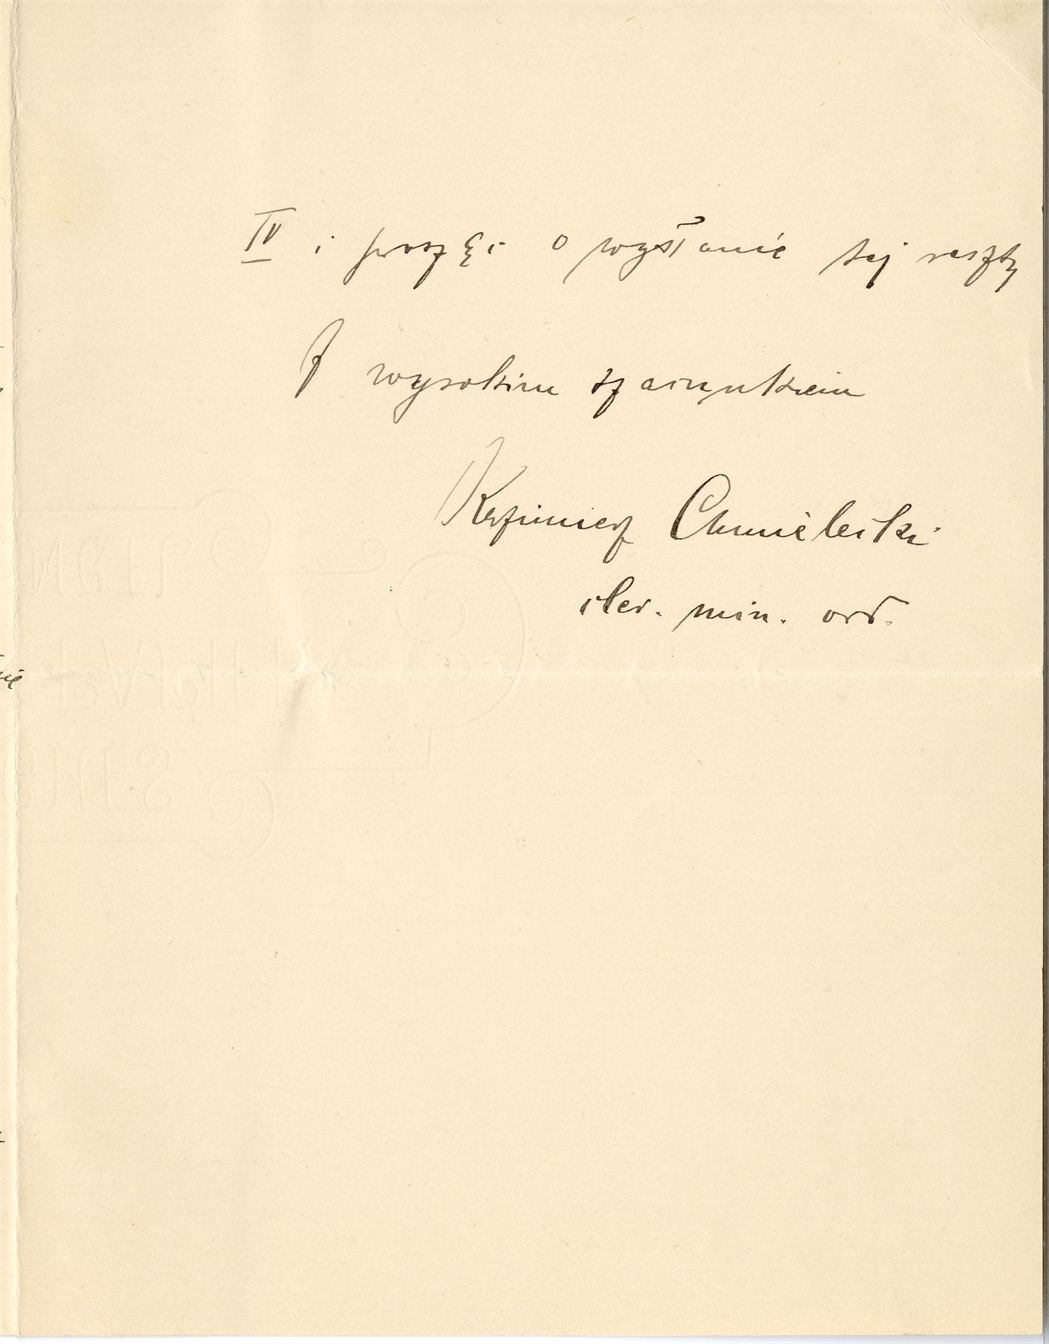 IV i proszę o wysłanie tej reszty
Z wysokim szacunkiem
Kazimierz Chmieleski
cler. min. ord.